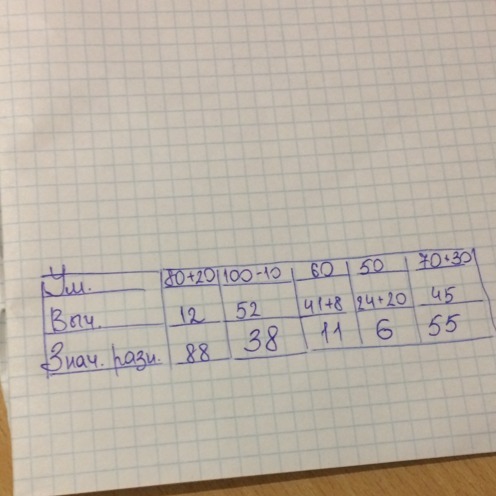 Ум. 80+20 100-10 60 50 70+30
Выч. 12 52 41+8 24+20 45
Знач. разн. 88 38 11 6 55